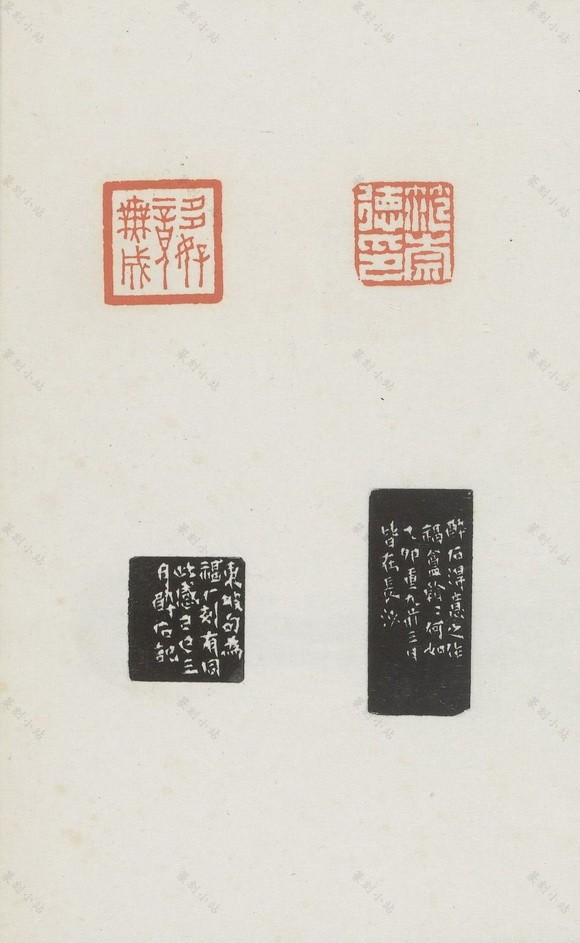 德印
多好
竟
無成
醉石得意之作
福盦 何如
乙卯重九前三日
皆在長沙
東坡句為
福厂刻有同
此感者也三
月醉石記
篆刻小站